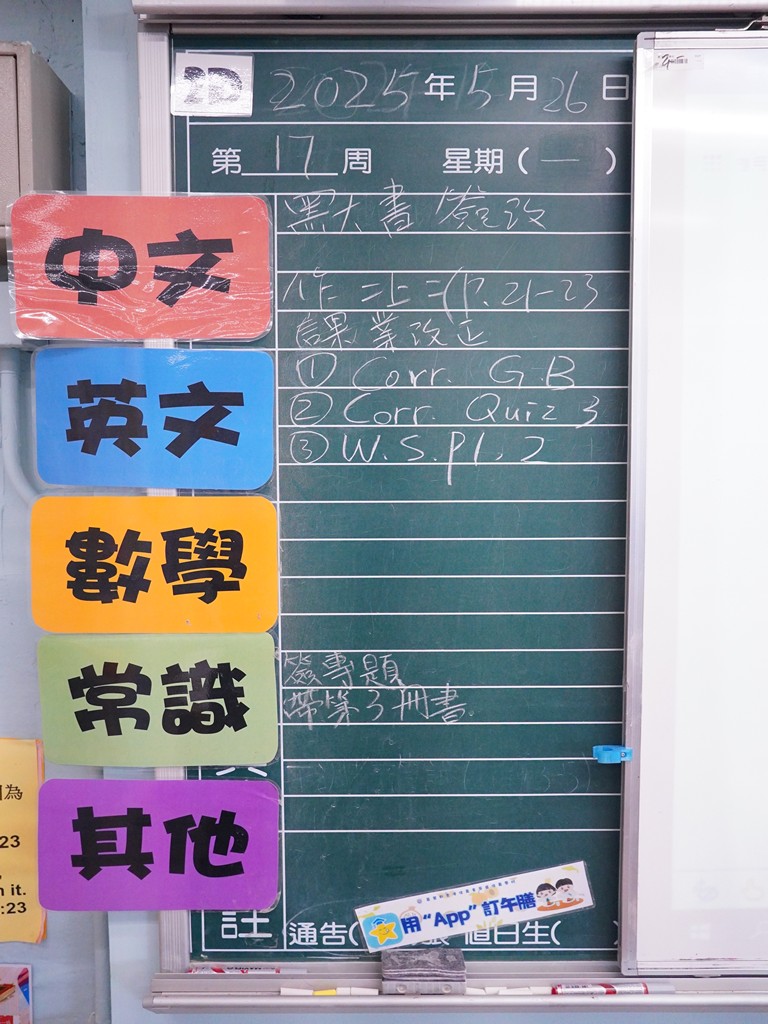 2D 2025年5月26日
第17周 星期(一)
中文
黑大書 簽改
作二上二(P.21-23
課業改正
英文
① Corr. G.B
② Corr. Quiz 3
③ W.S. p1, 2
數學
常識
簽專題
帶第3冊書
其他
註
通告( 值日生(
用“App”訂午膳
因為
23
n it.
:23